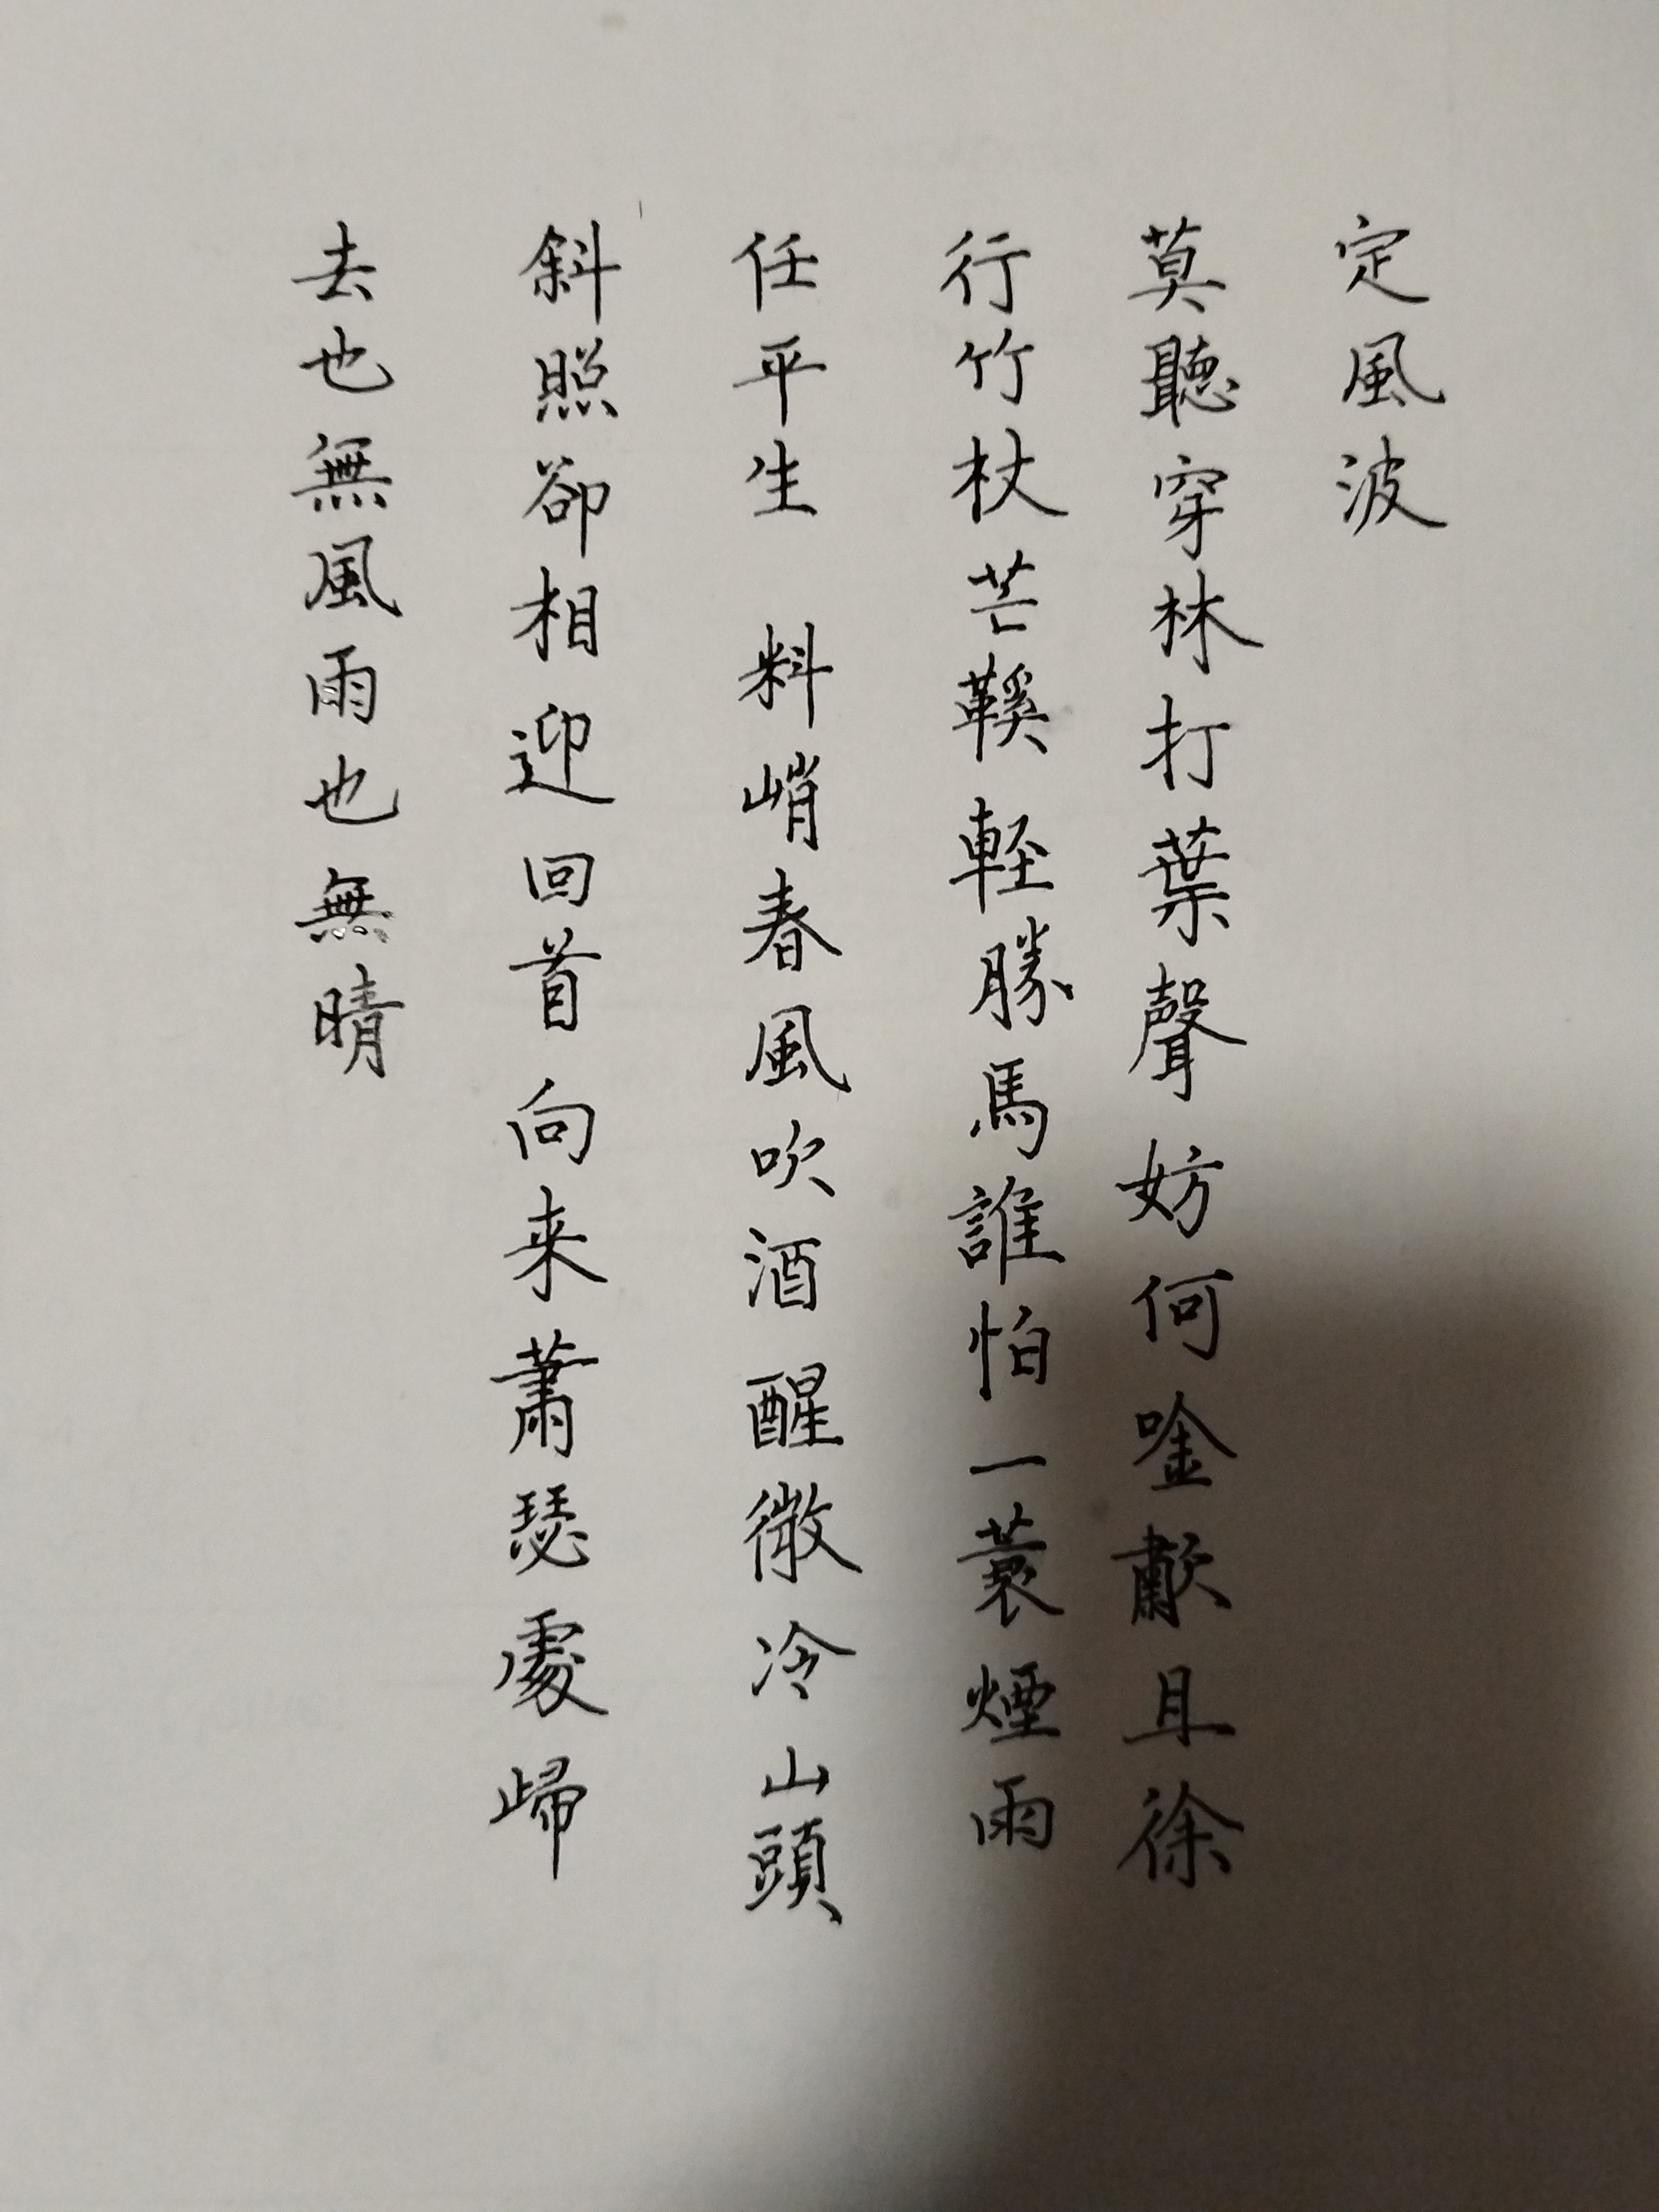 定風波
莫聽穿林打葉聲妨何唫歗且徐
行竹杖芒鞵輕勝馬誰怕一蓑煙雨
任平生 料峭春風吹酒醒微冷山頭
斜照卻相迎回首向来蕭瑟處歸
去也無風雨也無晴